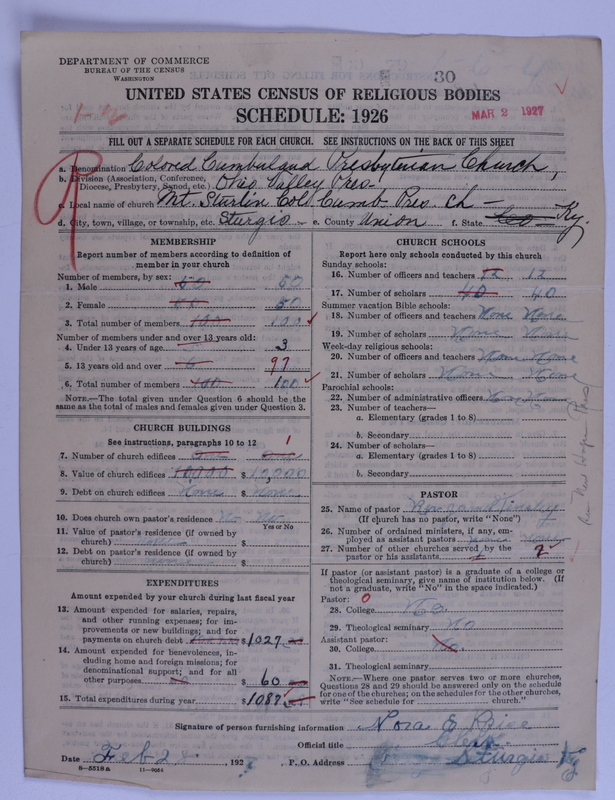 DEPARTMENT OF COMMERCE
BUREAU OF THE CENSUS
WASHINGTON
30
UNITED STATES CENSUS OF RELIGIOUS BODIES
SCHEDULE: 1926
MAR 2 1927
FILL OUT A SEPARATE SCHEDULE FOR EACH CHURCH. SEE INSTRUCTIONS ON THE BACK OF THIS SHEET
a. Denomination Colored Cumberland Presbyterian Church,
b. Division (Association, Conference,
Diocese, Presbytery, Synod, etc.) Ohio Valley Pres.
c. Local name of church Mt. Sturlin Col. Cumb Pres Ch
d. City, town, village, or township, etc. Sturgis e. County Union f. State Ky.
MEMBERSHIP
Report number of members according to definition of
member in your church
Number of members, by sex:
1. Male 50 50
2. Female 50
3. Total number of members 100 100
Number of members under and over 13 years old:
4. Under 13 years of age 3
5. 13 years old and over 97
6. Total number of members 100 100
NOTE.—The total given under Question 6 should be the
same as the total of males and females given under Question 3.
CHURCH BUILDINGS
See instructions, paragraphs 10 to 12
7. Number of church edifices 1
8. Value of church edifices 10,000 $ 10,000
9. Debt on church edifices None $ None
10. Does church own pastor's residence No
Yes or No
11. Value of pastor's residence (if owned by
church) $
12. Debt on pastor's residence (if owned by
church) $
EXPENDITURES
Amount expended by church during last fiscal year
13. Amount expended for salaries, repairs,
and other running expenses; for im-
provements or new buildings; and for
payments on church debt $ 1027
14. Amount expended for benevolences, in-
cluding home and foreign missions; for
denominational support; and for all
other purposes $ 60
15. Total expenditures during year $ 1087
CHURCH SCHOOLS
Report here only schools conducted by this church
Sunday schools:
16. Number of officers and teachers 12 12
17. Number of scholars 40 40
Summer vacation Bible schools:
18. Number of officers and teachers None None
19. Number of scholars None None
Week-day religious schools:
20. Number of officers and teachers None None
21. Number of scholars None None
Parochial schools:
22. Number of administrative officers
23. Number of teachers—
a. Elementary (grades 1 to 8)
b. Secondary
24. Number of scholars—
a. Elementary (grades 1 to 8)
b. Secondary
PASTOR
25. Name of pastor
(If church has no pastor, write "None")
26. Number of ordained ministers, if any, em-
ployed as assistant pastors
27. Number of other churches served by the
pastor or his assistants 2
If pastor (or assistant pastor) is a graduate of a college or
theological seminary, give name of institution below. (If
not a graduate, write "No" in the space indicated.)
Pastor: 0
28. College No
29. Theological seminary No
Assistant pastor:
30. College No
31. Theological seminary
NOTE.—Where one pastor serves two or more churches,
Questions 28 and 29 should be answered only on the schedule
for one of the churches; on the schedules for the other churches,
write "See schedule for church.
Signature of person furnishing information Nora E Price
Official title Clerk
Date Feb 192 P. O. Address Sturgis Ky
8—5518a 11—9064